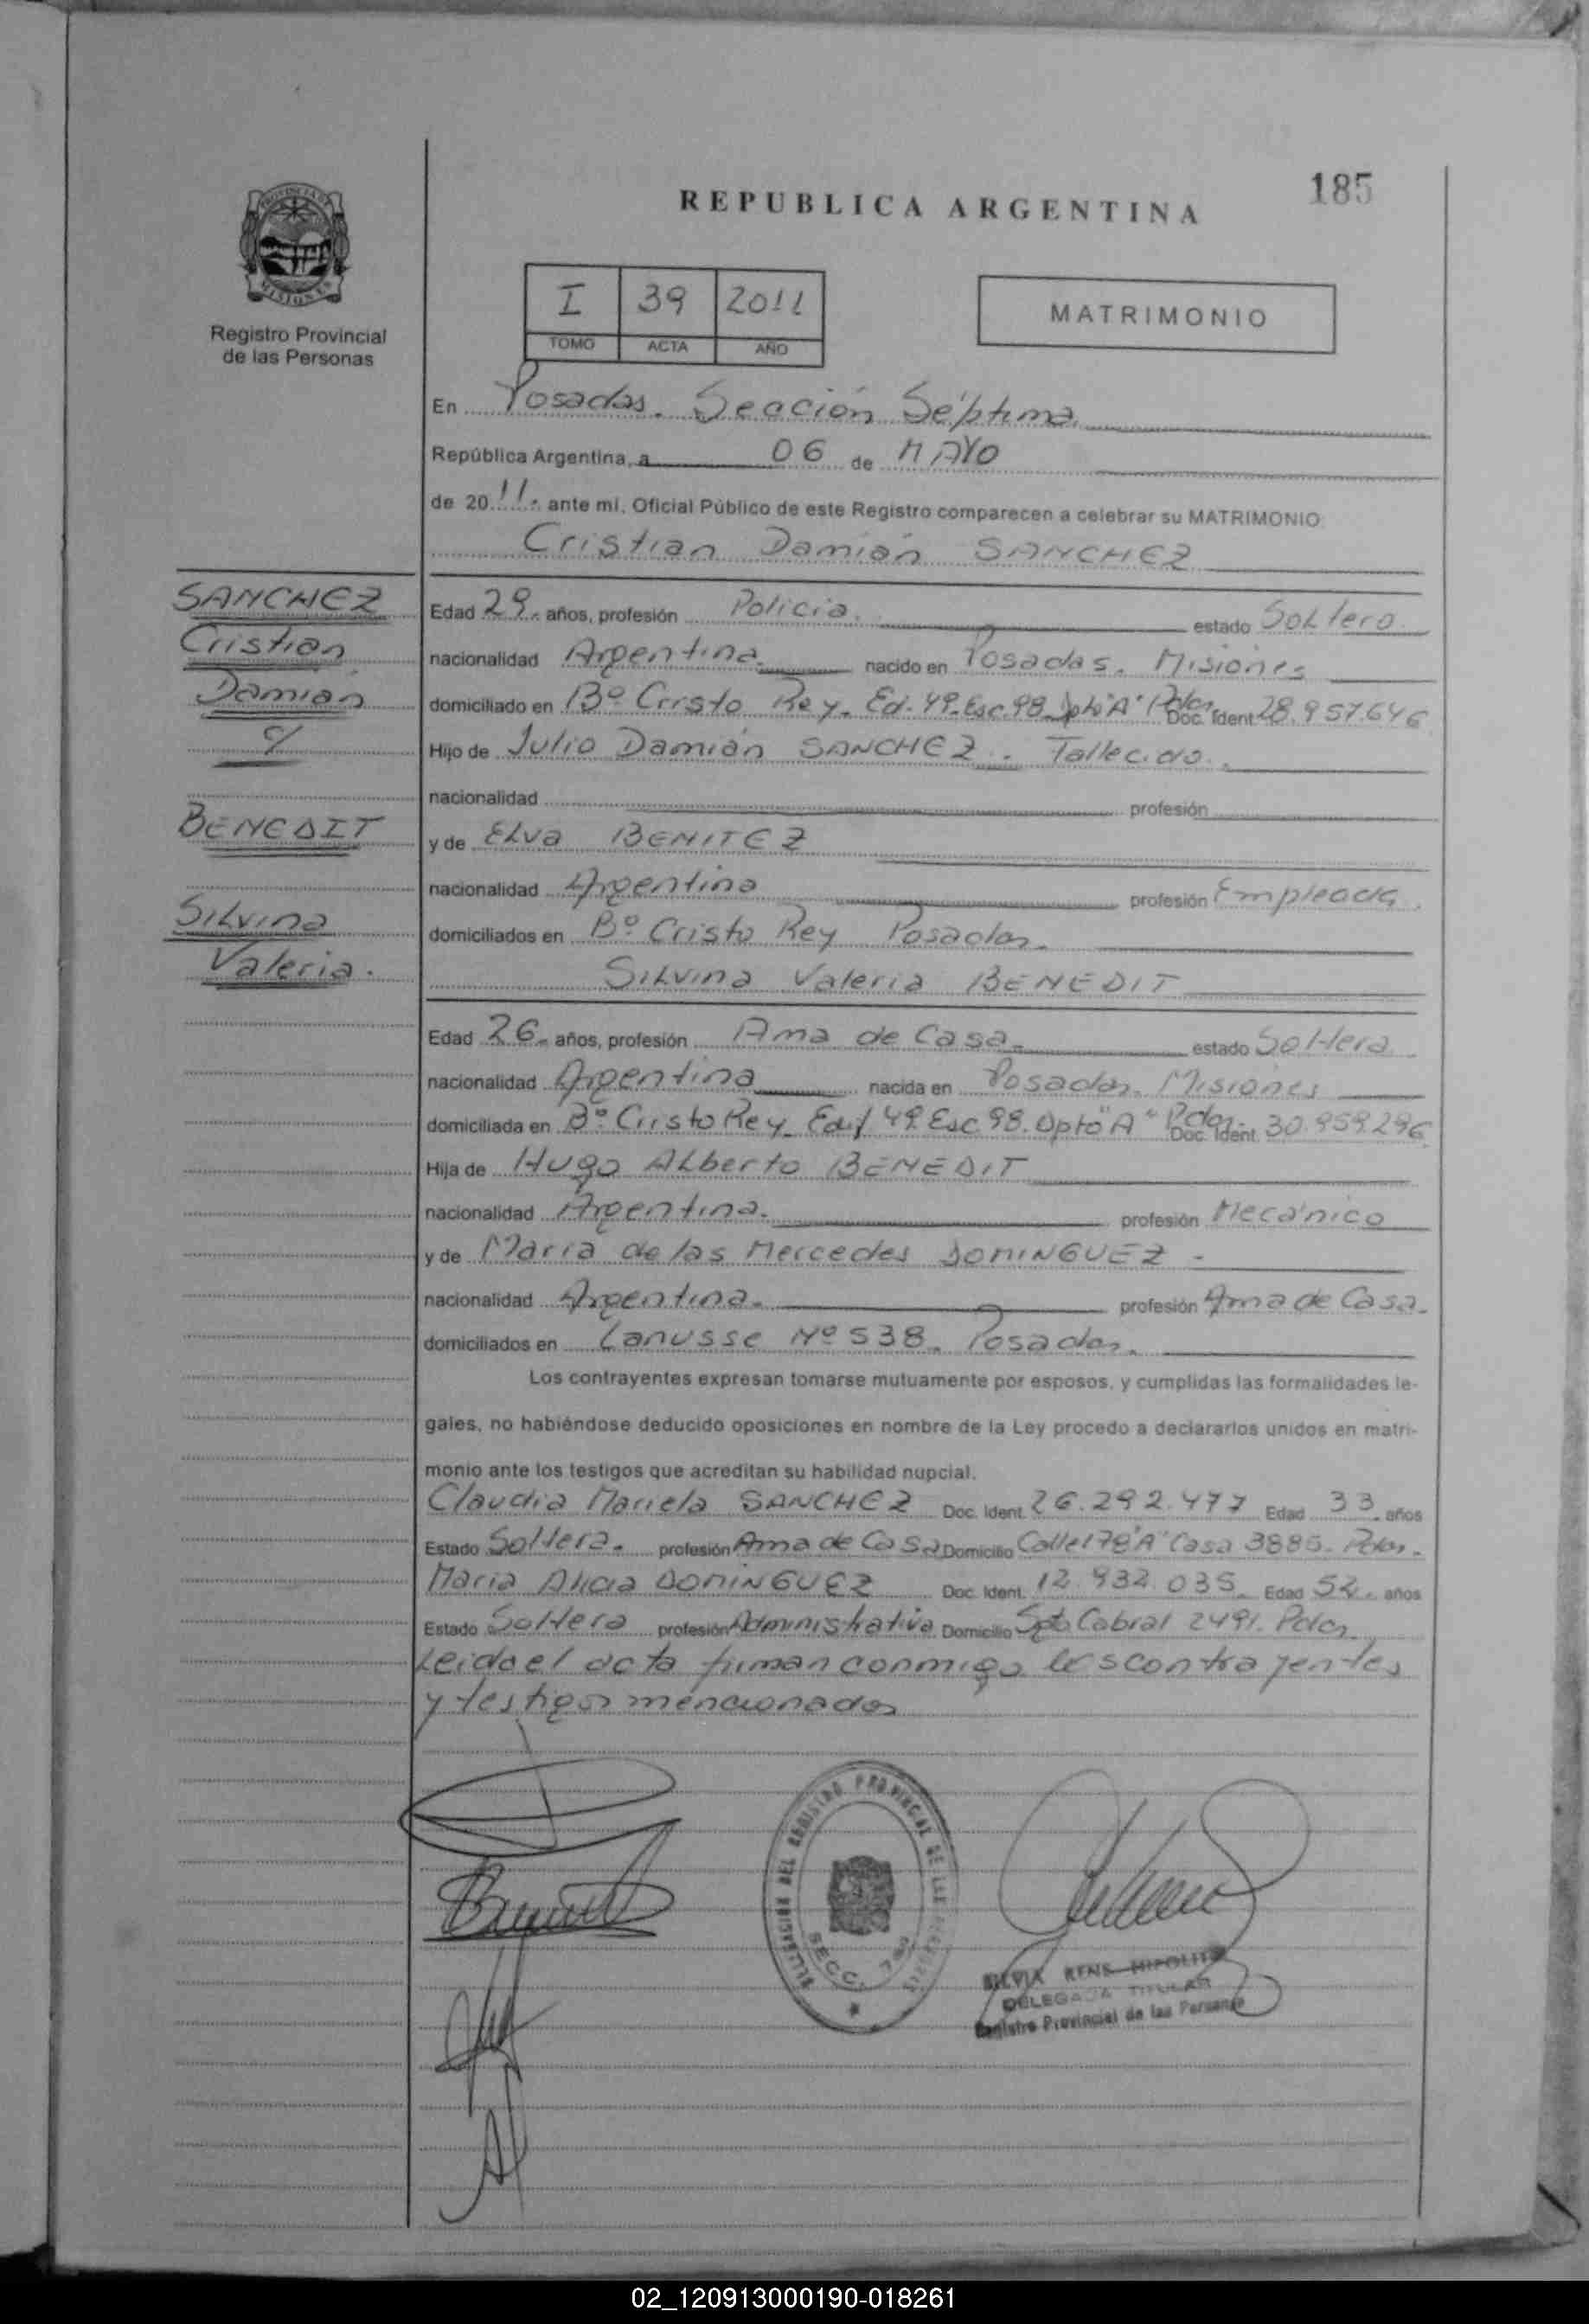 185
REPUBLICA ARGENTINA
PROVINCIA DE
MISIONES
Registro Provincial
de las Personas
I 39 2011
TOMO ACTA AÑO
MATRIMONIO
En Posadas. Sección Séptima
República Argentina, a 06 de MAYO
de 2011. ante mí, Oficial Público de este Registro comparecen a celebrar su MATRIMONIO
Cristian Damián SANCHEZ
SANCHEZ
Cristian
Damián
c/
BENEDIT
Silvina
Valeria.
Edad 29. años, profesión Policía. estado Soltero.
nacionalidad Argentina. nacido en Posadas. Misiones
domiciliado en Bº Cristo Rey. Ed. 49. Esc. 98 Dpto "A" Pdas. Doc. Ident 28.957.646
Hijo de Julio Damián SANCHEZ. Fallecido.
nacionalidad profesión
y de Elva BENITEZ
nacionalidad Argentina profesión Empleada.
domiciliados en Bº Cristo Rey Posadas.
Silvina Valeria BENEDIT
Edad 26. años, profesión Ama de Casa. estado Soltera.
nacionalidad Argentina nacida en Posadas. Misiones
domiciliada en Bº Cristo Rey. Edif 49. Esc 98. Dpto "A" Pdas. Doc. Ident 30.959.296
Hija de Hugo Alberto BENEDIT
nacionalidad Argentina. profesión Mecánico
y de María de las Mercedes DOMINGUEZ.
nacionalidad Argentina. profesión Ama de Casa.
domiciliados en Lanusse Nº 538. Posadas.
Los contrayentes expresan tomarse mutuamente por esposos, y cumplidas las formalidades le-
gales, no habiéndose deducido oposiciones en nombre de la Ley procedo a declararlos unidos en matri-
monio ante los testigos que acreditan su habilidad nupcial.
Claudia Mariela SANCHEZ Doc. Ident. 26.292.477 Edad 33 años
Estado Soltera. profesión Ama de Casa Domicilio Calle 178 "A" Casa 3885. Pdas.
María Alicia DOMINGUEZ Doc. Ident. 12.932.035. Edad 52. años
Estado Soltera profesión Administrativa Domicilio Sgto Cabral 2491. Pdas.
Leída el acta firman conmigo los contrayentes
y testigos mencionados
DELEGACION DEL REGISTRO PROVINCIAL DE LAS PERSONAS
SECC. 7ma
SILVIA HIPOLITO
DELEGADA TITULAR
Registro Provincial de las Personas
02_120913000190-018261